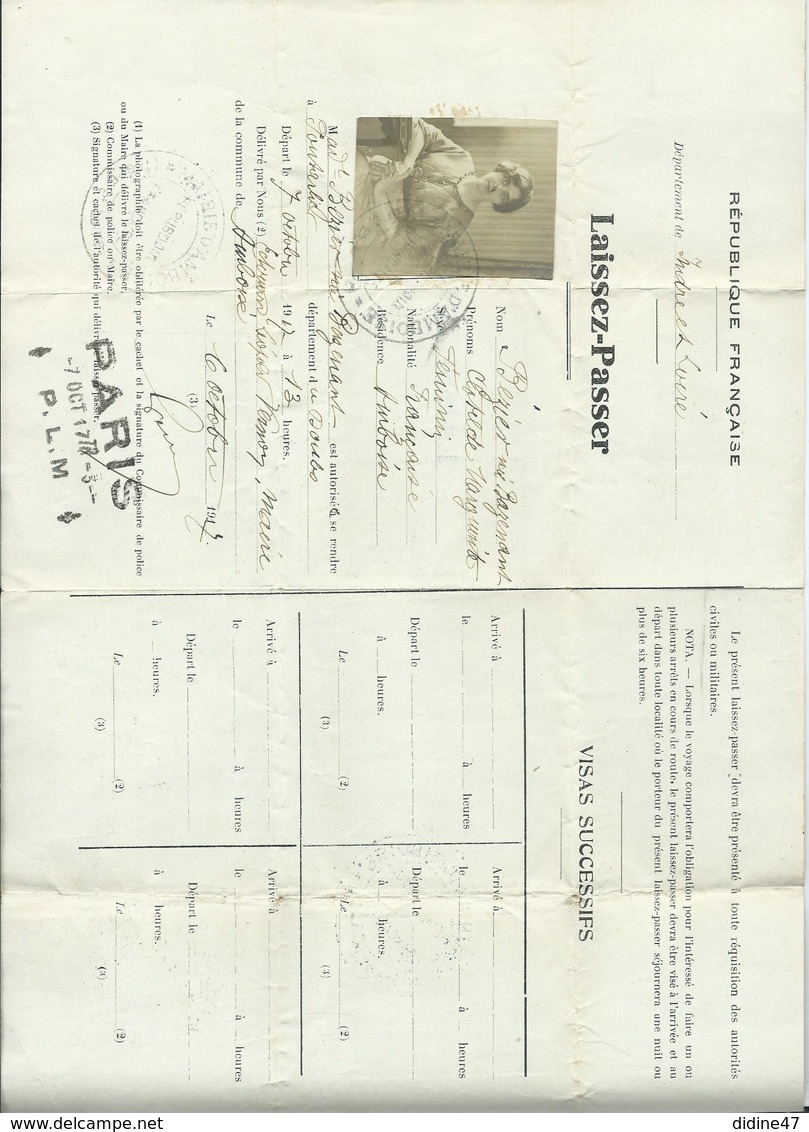 RÉPUBLIQUE FRANÇAISE
Département de Indre et Loire
Laissez-Passer
Nom Bézier née Bazenant
Prénoms Clotilde Marguerite
Sexe Féminin
Nationalité Française
Résidence Amboise
Mad e Bézier née Bazenant est autorisée à se rendre
à Pontarlier département du Doubs
Départ le 7 octobre 1917 à 13 heures.
Délivré par Nous (2) Maire
de la commune de Amboise
Le 6 octobre 1917.
(3)
(1) La photographie doit être oblitérée par le cachet et la signature du Commissaire de police
ou du Maire qui délivre le laissez-passer.
(2) Commissaire de police ou Maire.
(3) Signature et cachet de l'autorité qui délivre le laissez-passer.
MAIRIE D'AMBOISE
PARIS
-7 OCT 17
P. L. M
Le présent laissez-passer devra être présenté à toute réquisition des autorités
civiles ou militaires.
NOTA. — Lorsque le voyage comportera l'obligation pour l'intéressé de faire un ou
plusieurs arrêts en cours de route, le présent laissez-passer devra être visé à l'arrivée et au
départ dans toute localité où le porteur du présent laissez-passer séjournera une nuit ou
plus de six heures.
VISAS SUCCESSIFS
Arrivé à
le à heures
Départ le
à heures.
Le (2)
(3)
Arrivé à
le à heures
Départ le
à heures.
Le (2)
(3)
Arrivé à
le à heures
Départ le
à heures.
Le (2)
(3)
Arrivé à
le à heures
Départ le
à heures.
Le (2)
(3)
www.delcampe.net
didine47